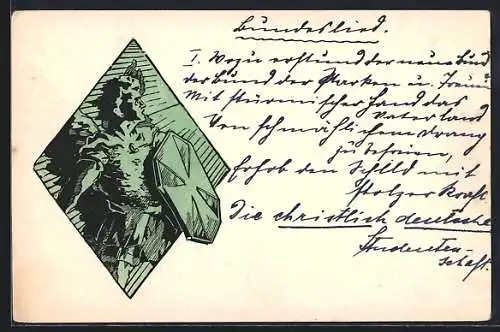 Bundeslied.
I. Wozu erstund der neue Bund
der Bund der Starken u. Treuen
Mit stürmischer Hand das
Vaterland
Von schmählichem Drang
zu befreien,
Erhob den Schild mit
stolzer Kraft
Die christlich deutsche
Studenten-
schaft.